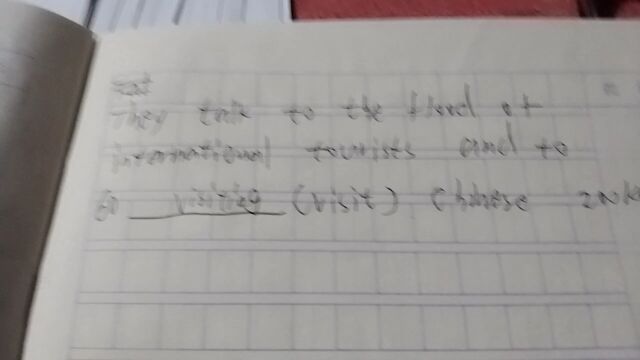 They talk to the flood of
international tourists and to
60 visiting (visit) Chinese